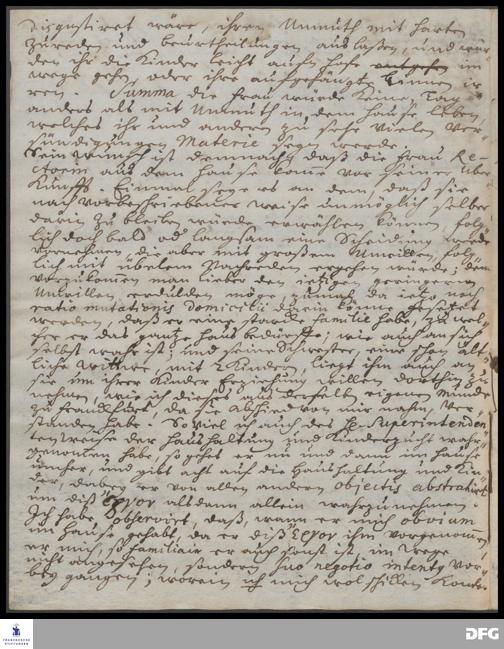 disgustiret wäre, ihren Unmuth mit harten
Zureden und beurtheilungen auslaßen, und
den ihr die Kinder leicht aufm Hofe im
wege gehn, oder ihre aufgehängte Linnen
ren. Summa die Frau würde keinen Tag
anders als mit Unmuth in dem Hause leben,
welches ihr und anderen zu sehr vielen Ver
sündigungen Materie seyn werde.
Sein wunsch ist demnach, daß die Frau Re-
ctorin aus dem Hause komme vor seiner über
kunfft. Einmal sey es an dem, daß sie
nach vorbeschriebener weise unmöglich selber
darin zu bleiben würde erwählen können, folg
lich doch bald od langsam eine Scheidung werde
vornehmen, die aber mit großem Unwillen, folg
lich mit übelem Nachreden ergehen würde;
vorzukommen man lieber den itzigen geringern
Unwillen erdulden möge, zumah da ietzo noch
ratio mutationis domicilii darin könne gesetzet
werden, daß er eine starke familie habe, zu wel
cher er das gantze Haus bedürffte, wie auch an sich
selbst wahr ist; und seine Schwester, eine schon ält
liche Wittwe, mit 2 Kindern, liege ihm auch an
sie um ihrer Kinder Erziehung willen dorthin zu
nehmen, wie ich dieses aus derselben eigenem Munde
zu Frankfurt, da sie Abschied von mir nahm, ver
standen habe. So viel ich auch des H. Superintenden
ten weise der Haushaltung und Kinderzucht wahr
genommen habe, so gehet er nu und dann im Hause
umher, und gibt acht auf die Haushaltung und Kin
der, dabey er von allen anderen objectis abstrahiret
um diß ἔργον alsdann allein wahrzunehmen.
Ich habe observiret, daß, wann er mich obvium
im Hause gehabt, da er diß ἔργον ihm vorgenommen
er mich, so familiair er auch sonst ist, im wege
nicht angesehen, sondern suo negotio intentus vor
bey gangen; worein ich mich wol schicken konte